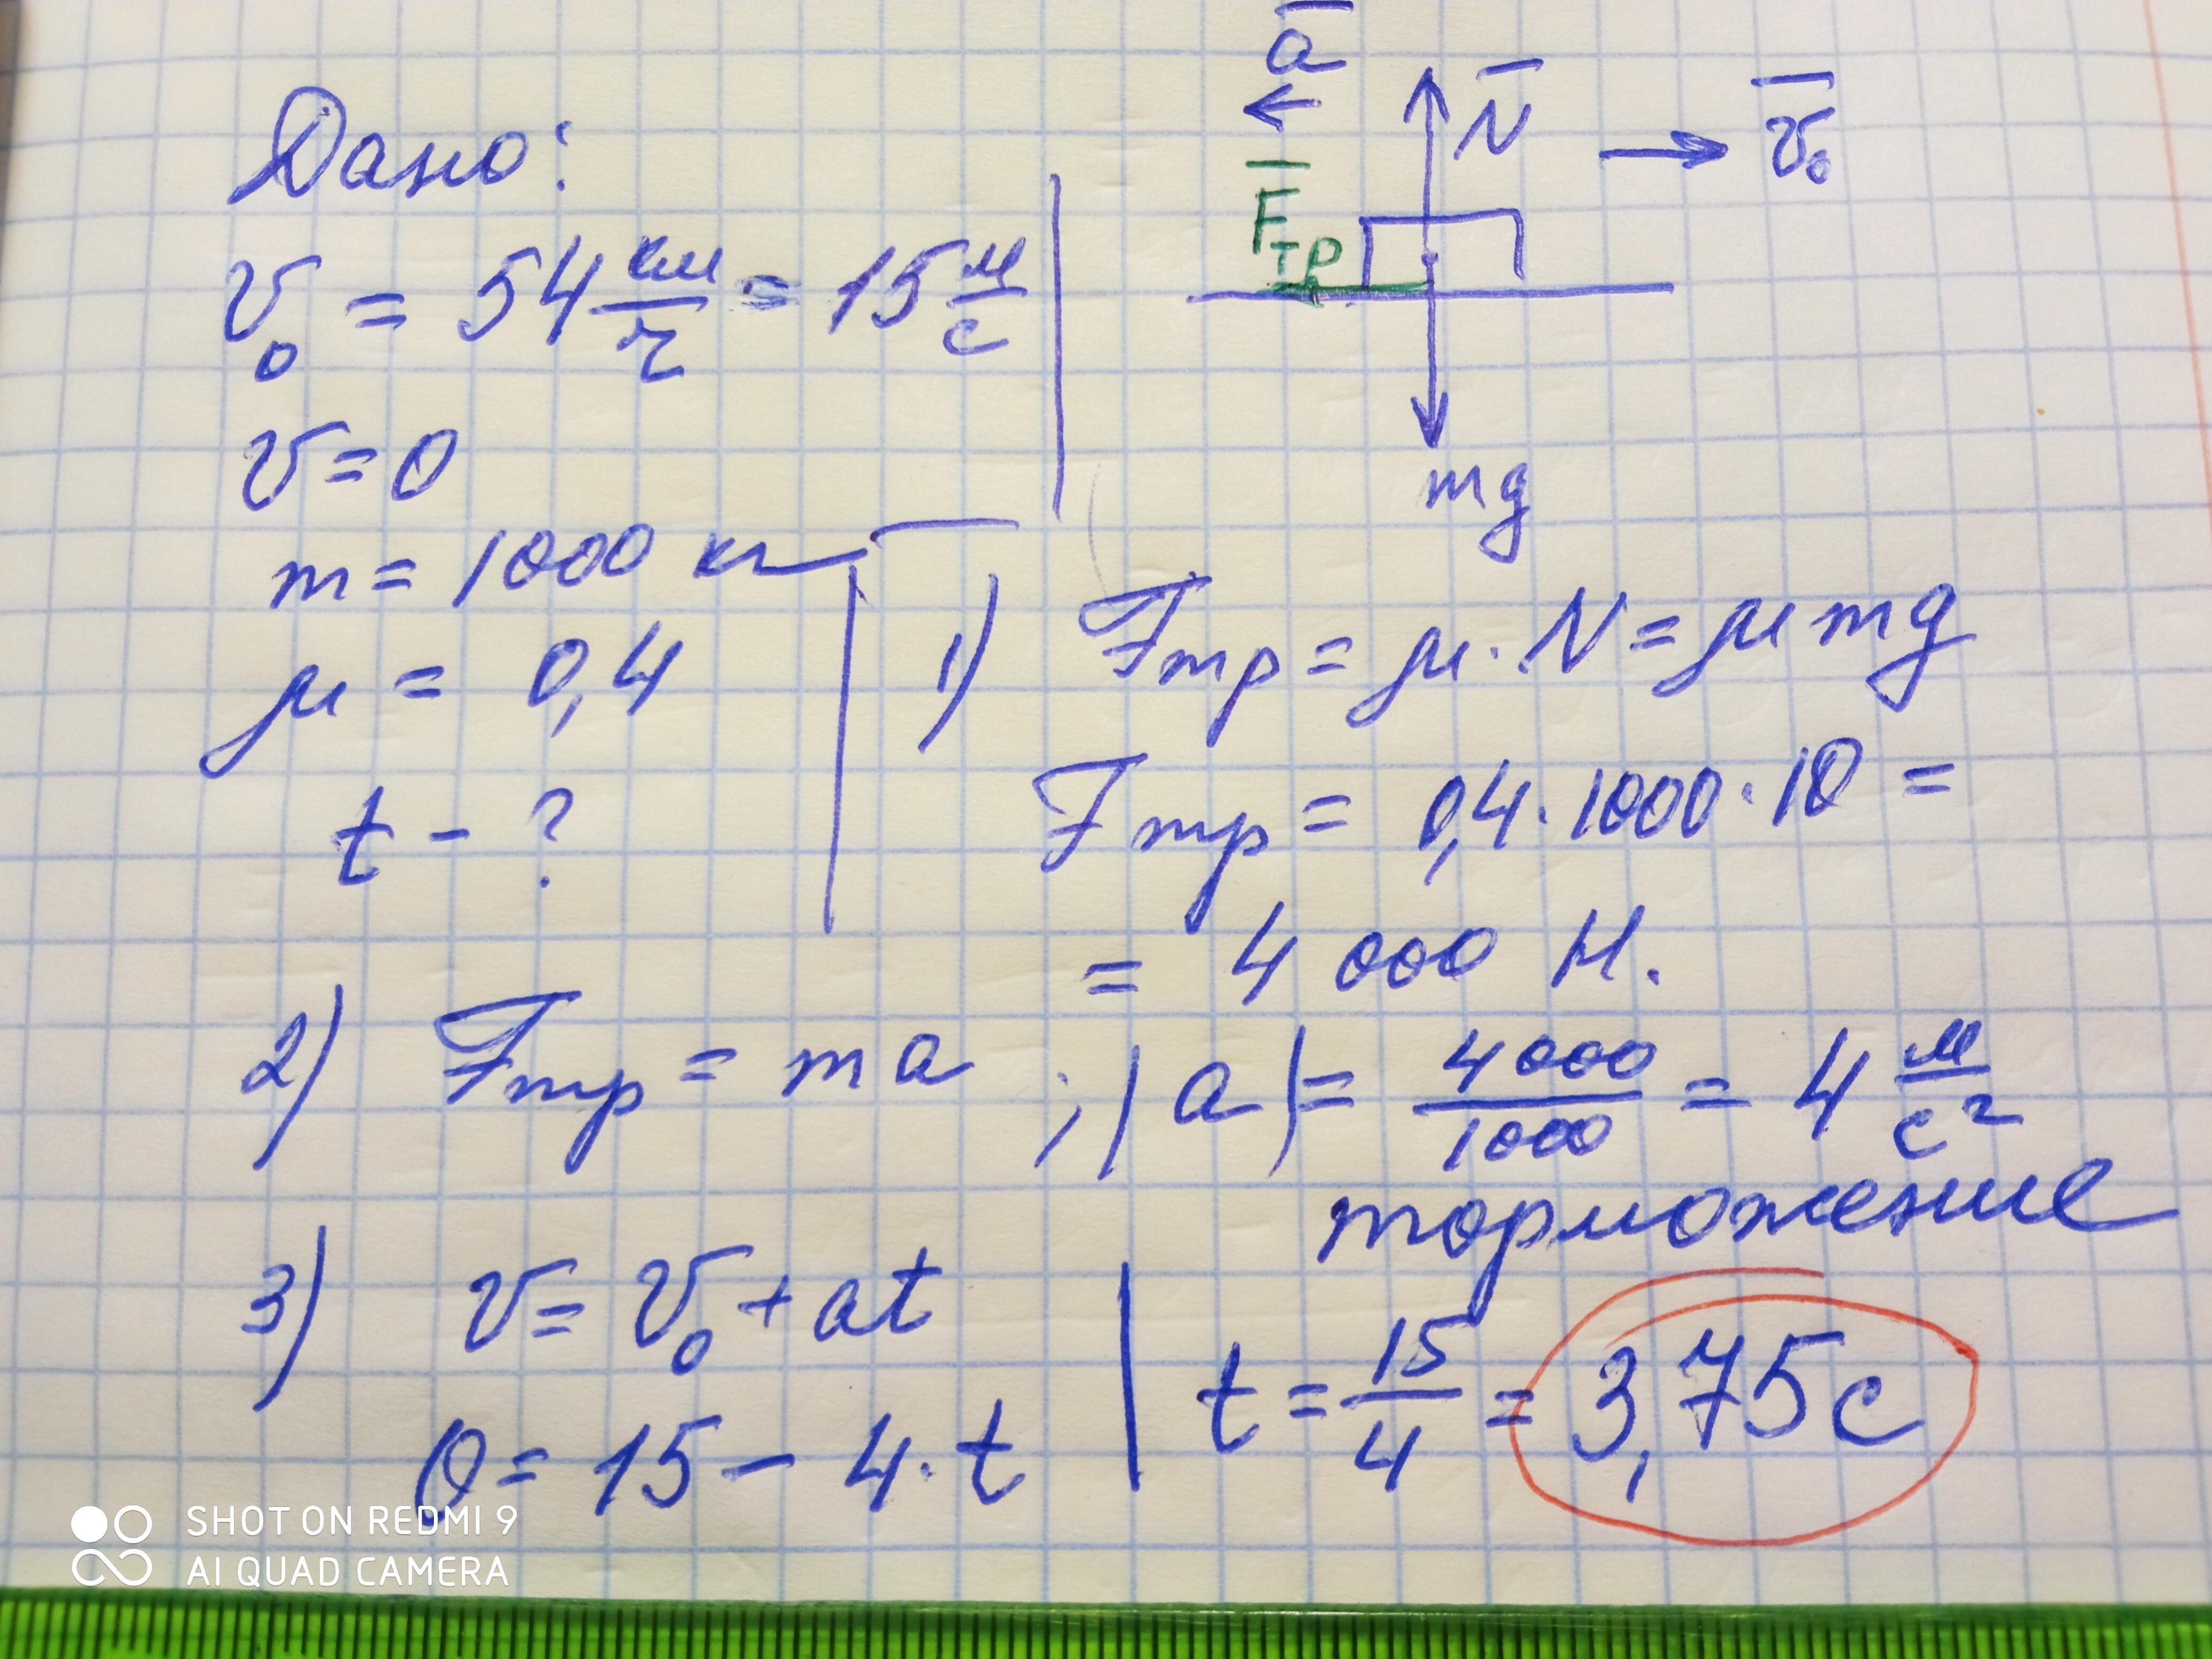 Дано:
v₀ = 54 км/ч = 15 м/с
v = 0
m = 1000 кг
μ = 0,4
t - ?
a
N
v₀
Fтр
mg
1) Fтр = μ · N = μmg
Fтр = 0,4 · 1000 · 10 =
= 4 000 Н.
2) Fтр = ma ; |a| = 4000/1000 = 4 м/с²
торможение
3) v = v₀ + at
0 = 15 - 4 · t
t = 15/4 = 3,75 с
SHOT ON REDMI 9
AI QUAD CAMERA